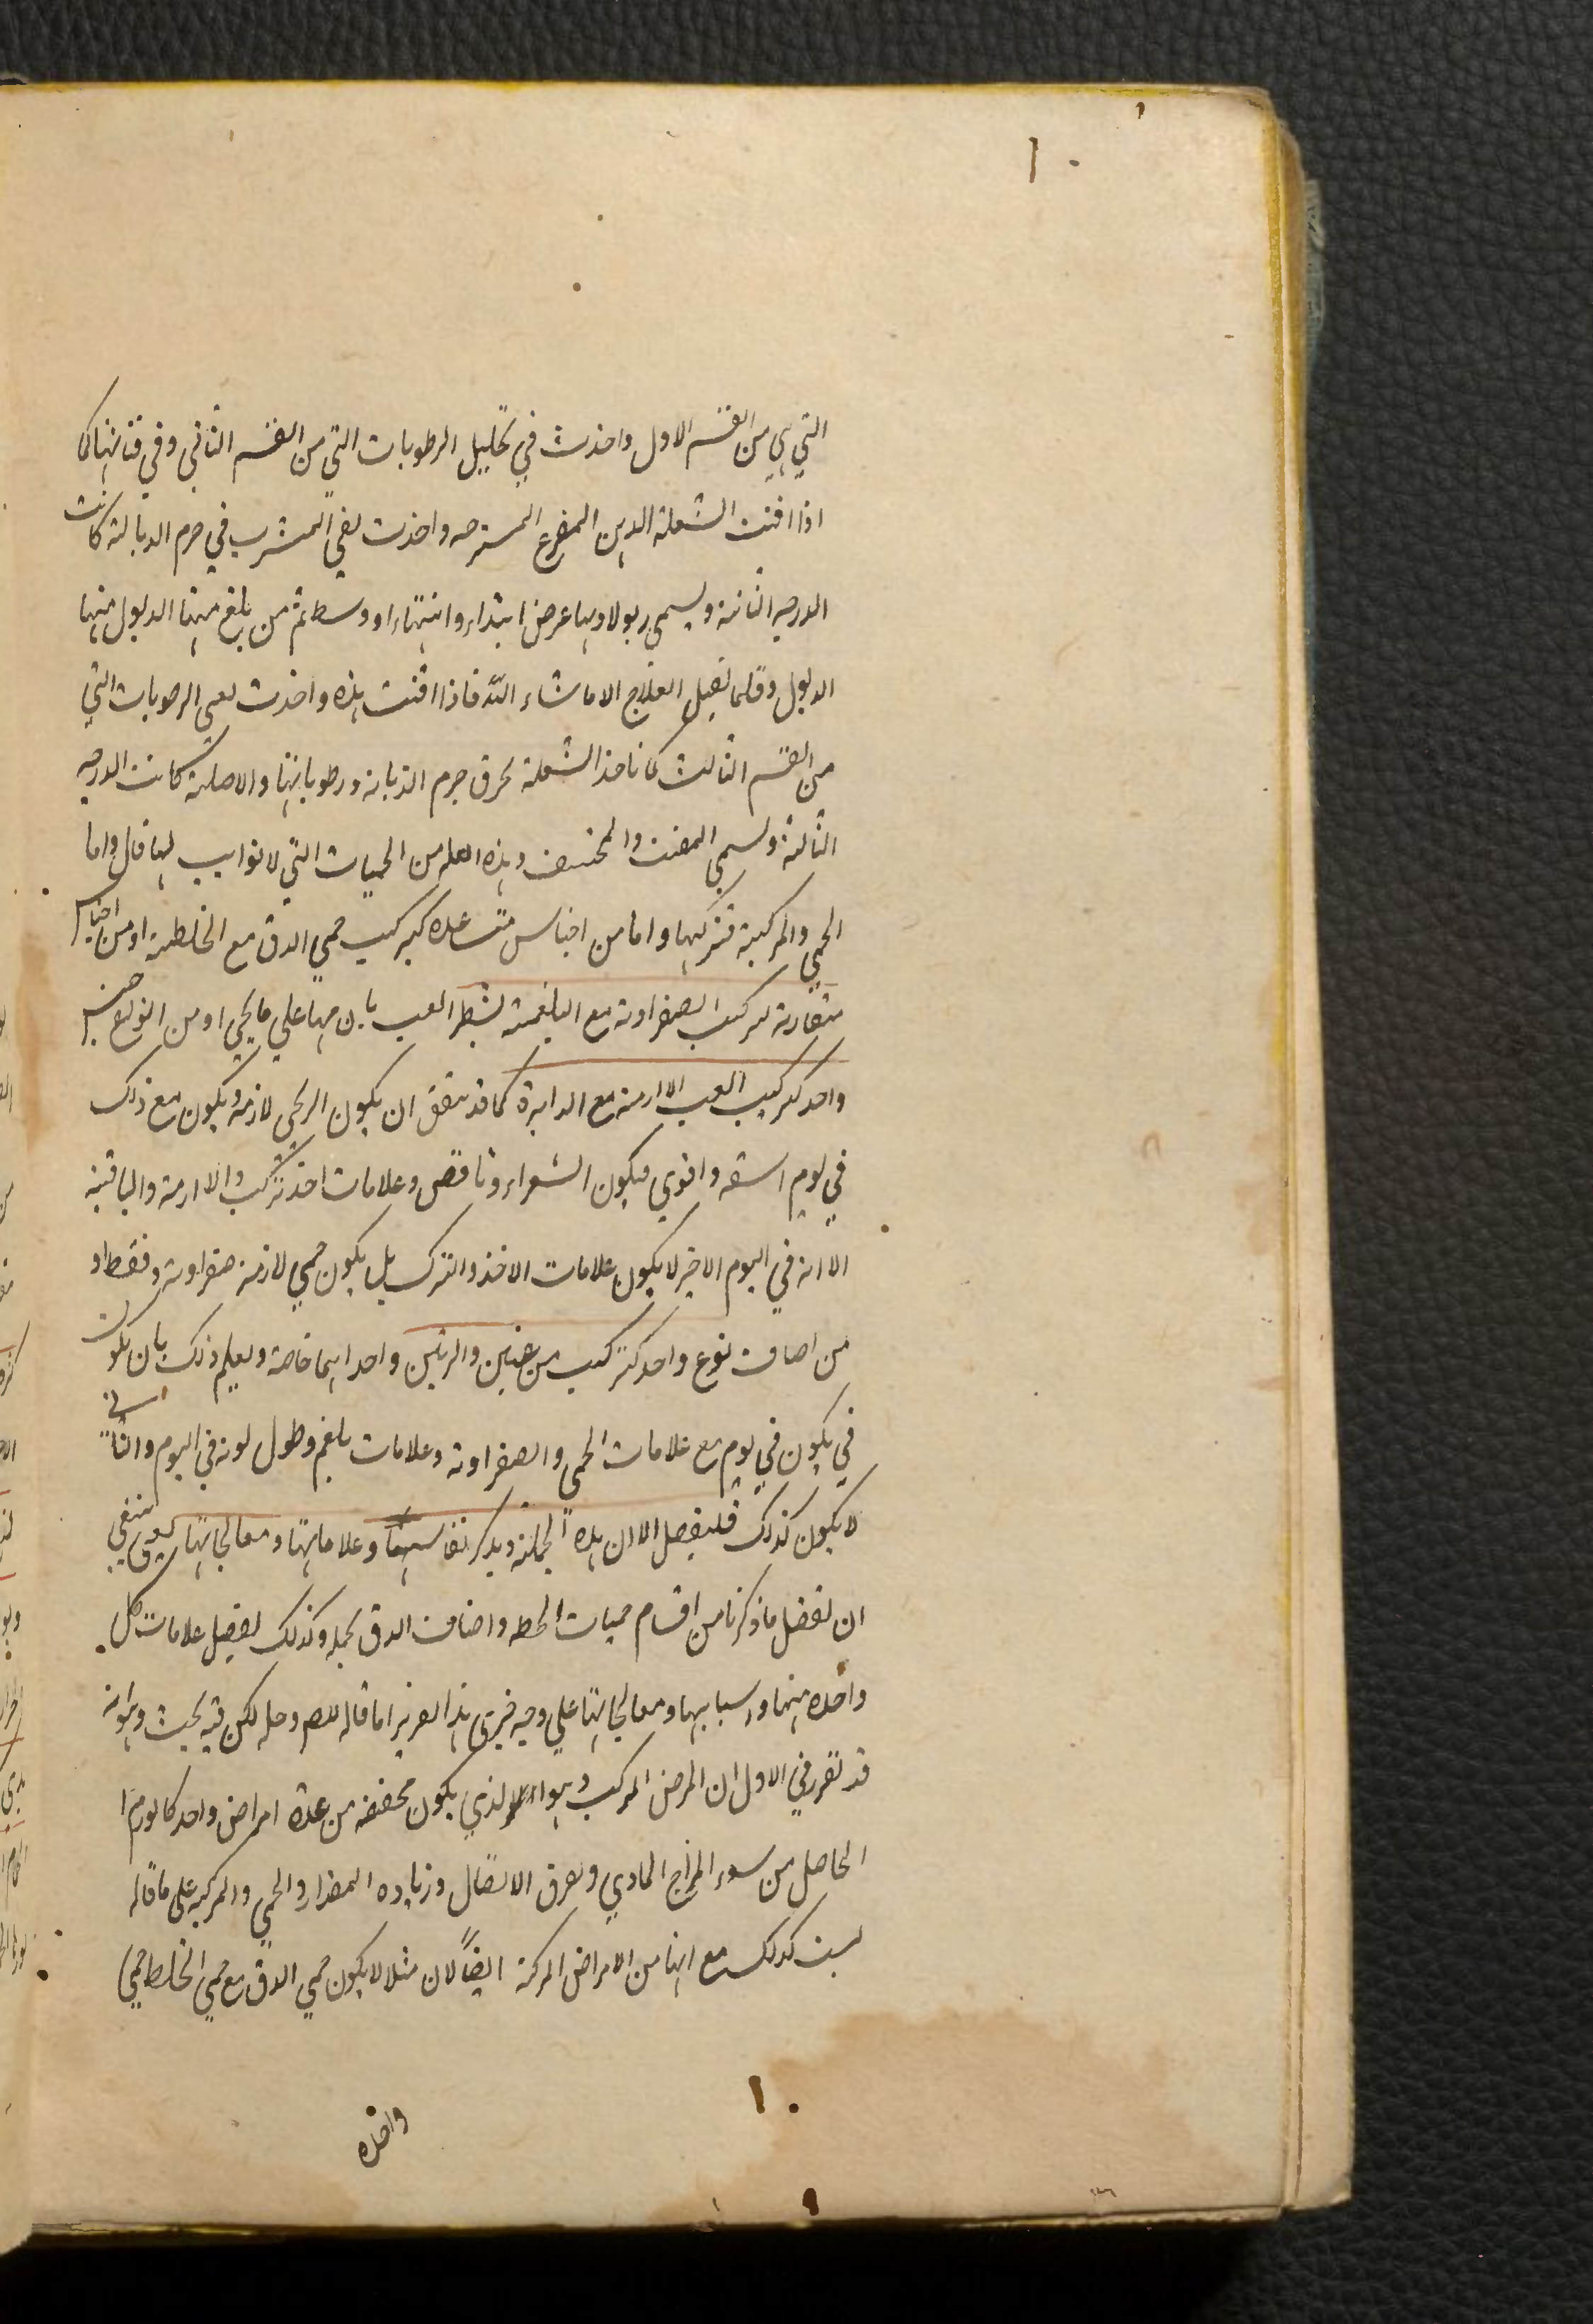 التي هي من القسم الاول واخذت في تحليل الرطوبات التي من القسم الثاني وفي فنائها كما
اذا افنت الشعلة الدهن المفرغ المسرجه واخذت تفني المتشرب في جرم الدبالة كانت
الدرجه الثانية ويسمى ربولا ولها عرض ابتداء وانتهاء ووسط ثم من بلغ منها الدبول منها
الدبول وقلما تقبل العلاج الا ماشاء الله فاذا افنت هذه واخذت تفني الرطوبات التي
من القسم الثالث كما تاخذ الشعلة تحرق جرم الذبالة ورطوباتها والاصلية كانت الدرجه
الثالثة ويسمى المفتت والمحشف وهذه العله من الحميات التي لا نوايب لها قال واما
الحمى والمركبة فتركبها واما من اجناس متباعده كتركيب حمى الدق مع الخلطية او من اجناس
متقاربة كتركيب الصفراوية مع البلغمية لشطر الغب بان منها على ما يجي او من انواع جنس
واحد كتركيب الغب اللازمة مع الدايرة كما قد يتفق ان يكون الرجى لازمة ويكون مع ذلك
في يوم اشد واقوى فيكون الشعراء وناقص وعلامات اخذ تركب واللازمة والباقية
الا انه في اليوم الاخر لا يكون علامات الاخذ والترك بل يكون حمى لازمة صفراوية وفقط او
من اصناف نوع واحد كتركيب من غبين والربعين واحد ايما خاصة ويعلم ذلك بان يكون
في يكون في يوم مع علامات الحمى والصفراوية وعلامات بلغم وطول نوبة في اليوم والثانى
لا يكون كذلك فليفصل الان هذه الجملة ويذكر تفاسيها وعلاماتها ومعالجاتها يعنى ينبغي
ان نفصل ما ذكرنا من اقسام حميات الخلط واصناف الدق بجمله وكذلك تفصيل علامات كل
واحده منها واسبابها ومعالجاتها على وجه جزئى هذا تقرير ما قاله المص وحله لكن فيه بحث وهو انه
قد تقرر في الاول ان المرض المركب وهو الذي يكون محققه من عدة امراض واحد كالورم
الحاصل من سوء المزاج المادي وتفرق الاتصال وزياده المقدار والحمى والمركبه على ما قاله
ليست كذلك مع انها من الامراض المركبة ايضاً لان مثلا لا يكون حمى الدق مع حمى الخلط حمى
واحده